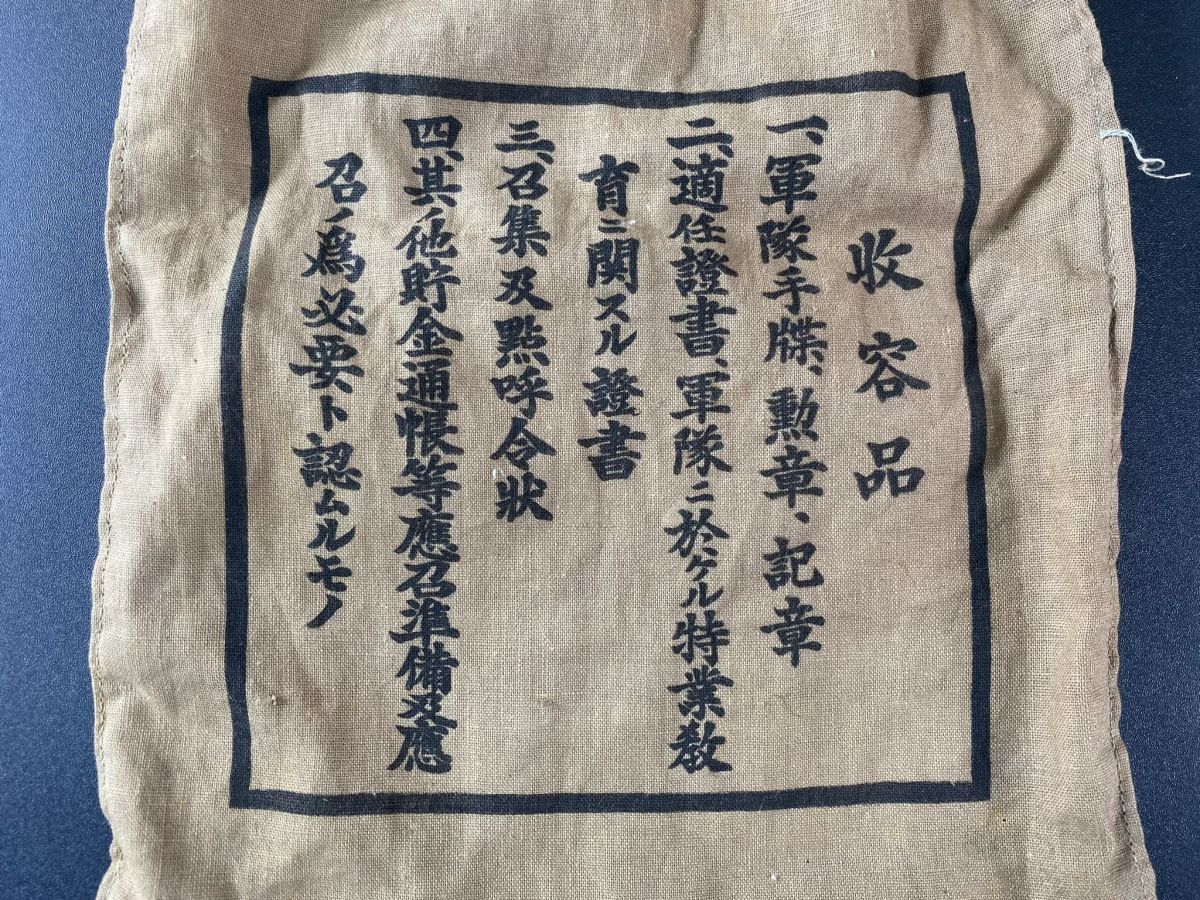 收容品
一、軍隊手牒、勲章、記章
二、適任證書、軍隊ニ於ケル特業教
育ニ関スル證書
三、召集及點呼令狀
四、其ノ他貯金通帳等應召準備及應
召ノ為必要ト認ムルモノ